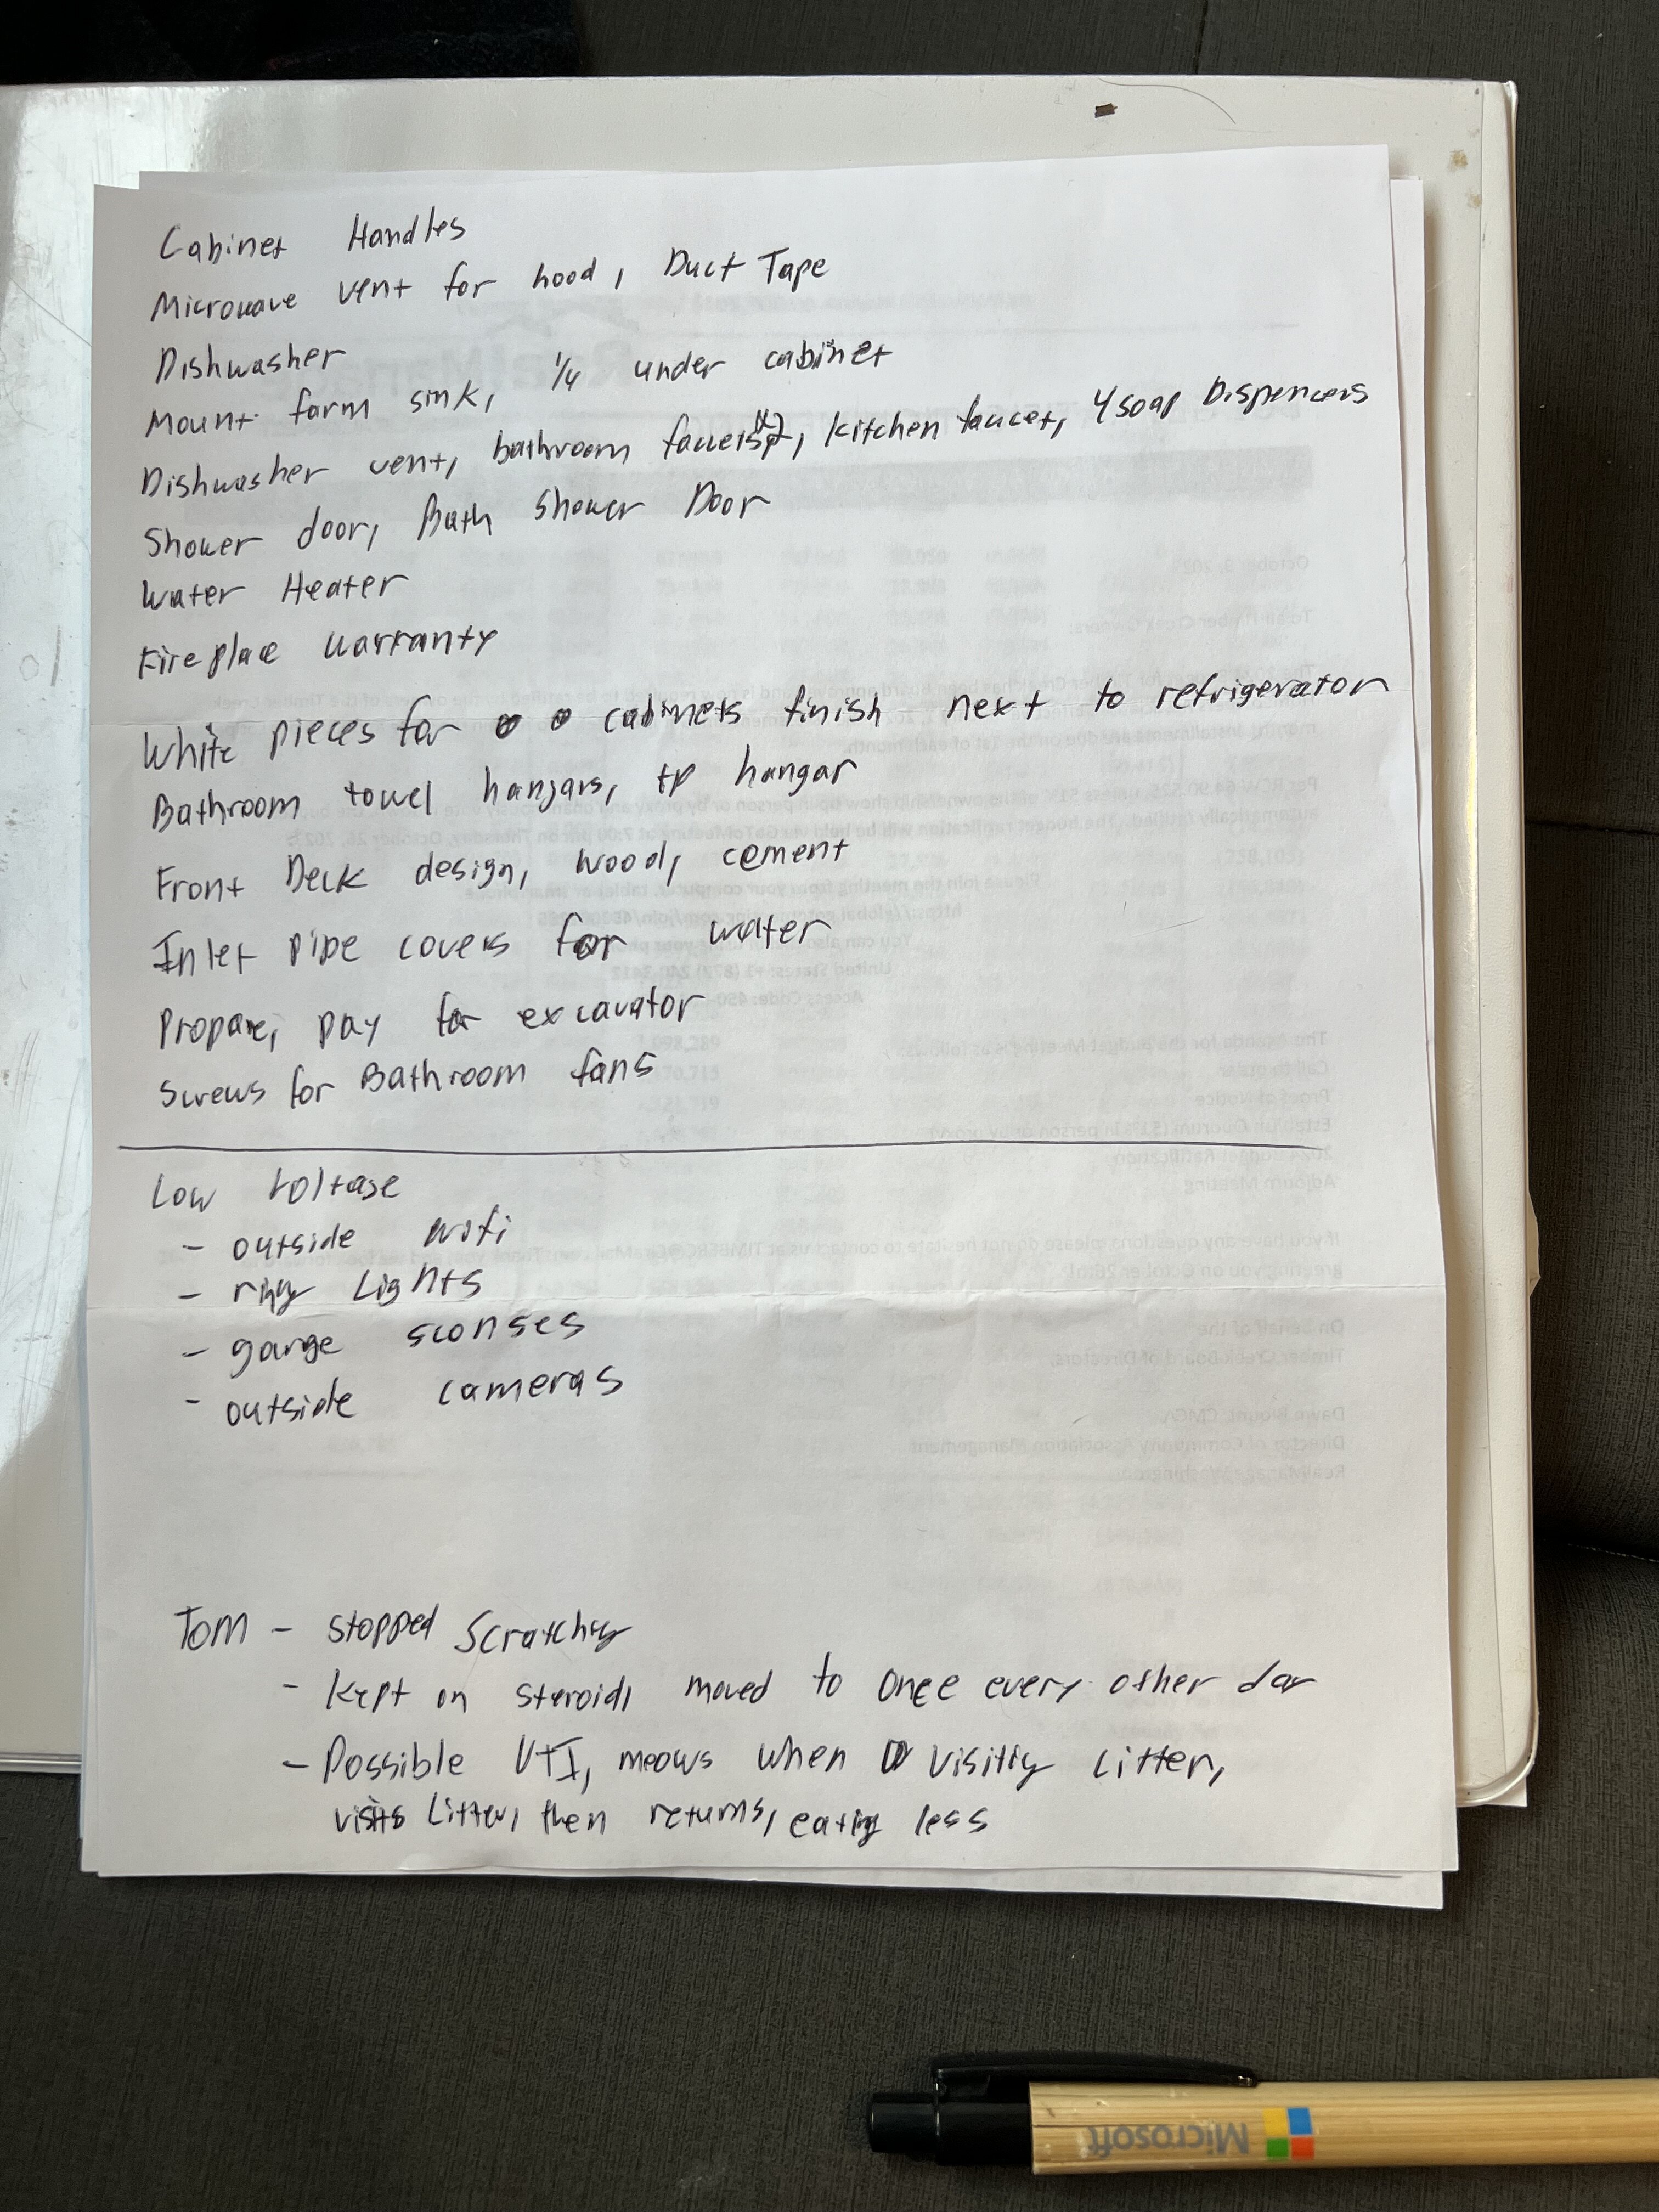 Cabinet Handles
Microwave vent for hood, Duct Tape
Dishwasher
Mount farm sink, 1/4 under cabinet
Dishwasher vent, bathroom faucets, kitchen faucet, 4 soap Dispencers
Shower door, Bath Shower Door
Water Heater
Fireplace warranty
White pieces for cabinets finish next to refrigerator
Bathroom towel hangars, tp hangar
Front Deck design, wood, cement
Inlet pipe covers for water
Propane, pay for excavator
Screws for Bathroom fans
Low Voltage
- outside wifi
- ring Lights
- garge sconses
- outside cameras
Tom - stopped Scratching
- Kept on steroid, moved to once every other day
- Possible UTI, meows when visiting Litter,
visits Litter, then returns, eating less
Microsoft